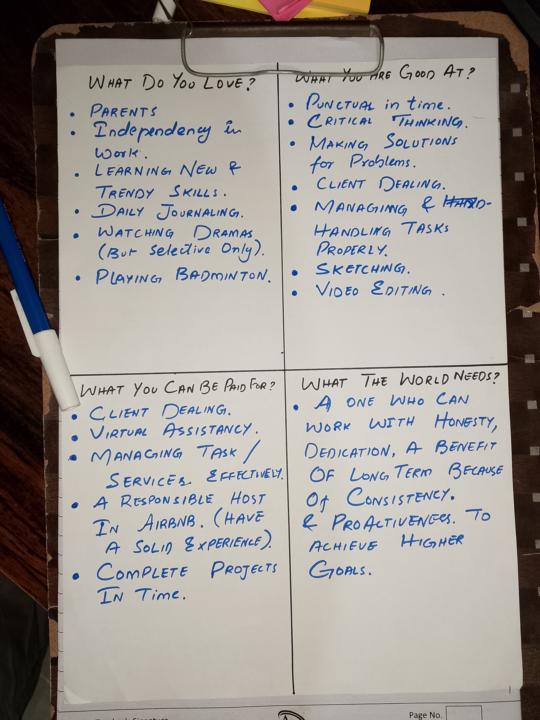 WHAT DO YOU LOVE?
• PARENTS
• Independency in
Work.
• LEARNING NEW &
TRENDY SKILLS.
• DAILY JOURNALING.
• WATCHING DRAMAS
(But Selective Only).
• PLAYING BADMINTON.
WHAT YOU ARE GOOD AT?
• PUNCTUAL in time.
• CRITICAL THINKING.
• MAKING SOLUTIONS
for Problems.
• CLIENT DEALING.
• MANAGING &
HANDLING TASKS
PROPERLY.
• SKETCHING.
• VIDEO EDITING.
WHAT YOU CAN BE PAID FOR?
• CLIENT DEALING.
• VIRTUAL ASSISTANCY.
• MANAGING TASK /
SERVICES EFFECTIVELY.
• A RESPONSIBLE HOST
IN AIRBNB. (HAVE
A SOLID EXPERIENCE).
• COMPLETE PROJECTS
IN Time.
WHAT THE WORLD NEEDS?
• A ONE WHO CAN
WORK WITH HONESTY,
DEDICATION, A BENEFIT
OF LONG TERM BECAUSE
OF CONSISTENCY.
& PROACTIVENESS. TO
ACHIEVE HIGHER
GOALS.
Page No.